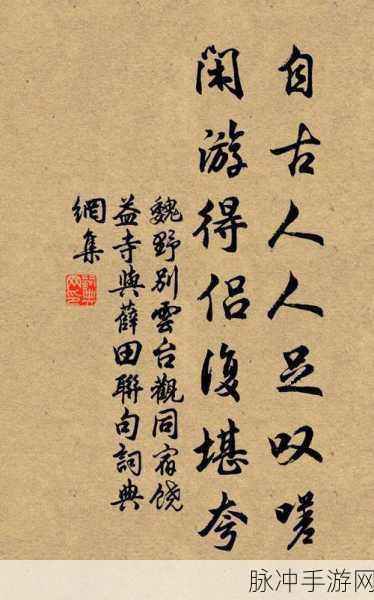 自古人人足叹嗟
闲游得侣復堪夸
魏野别雲台觀同宿饶
益寺與薛田聯句詞典
網集
脉冲手游网